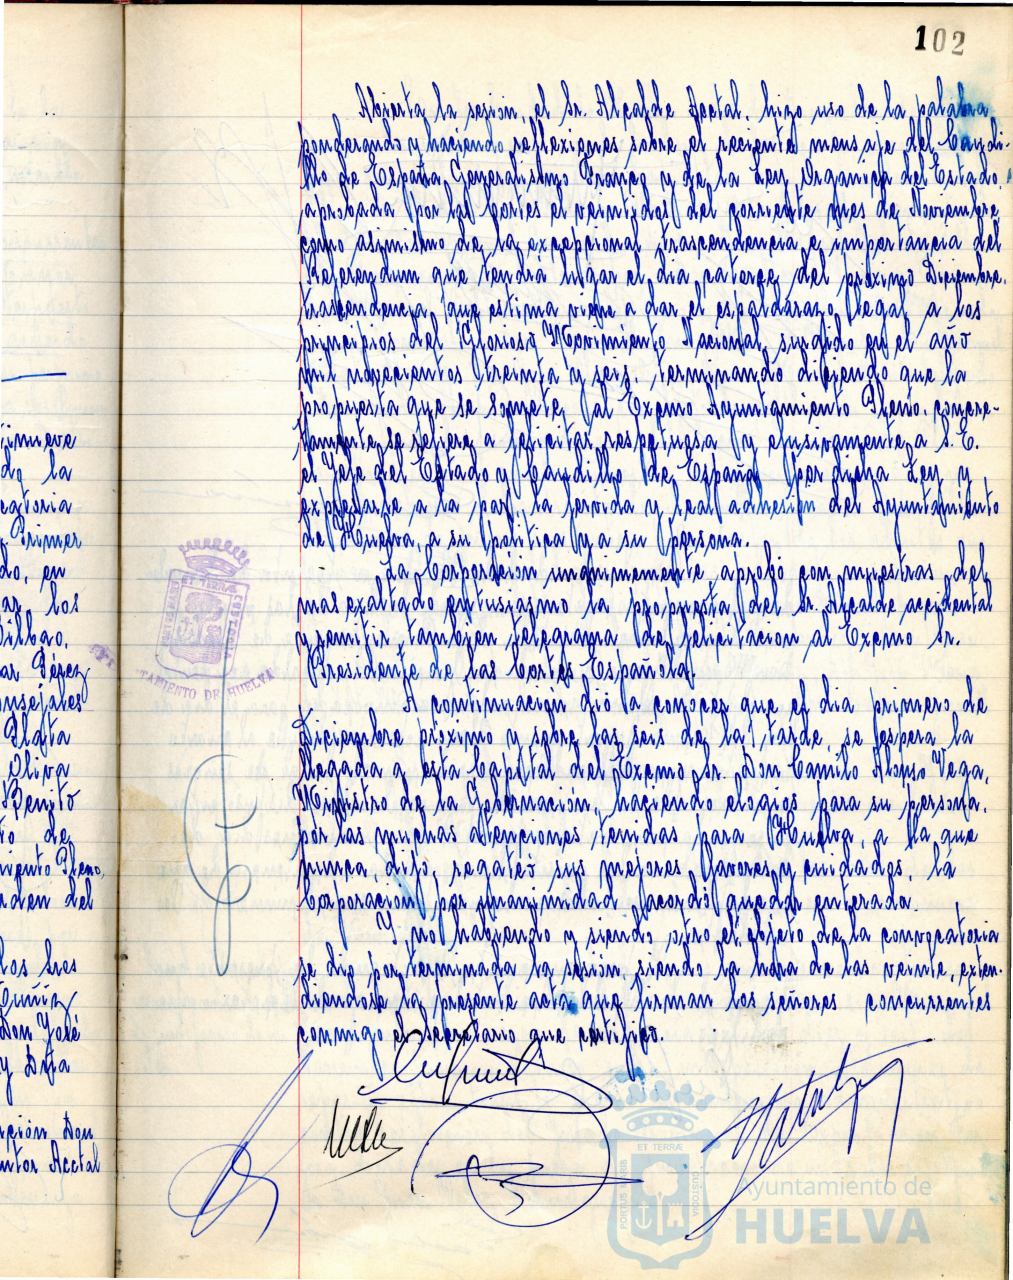 102
Abierta la sesión, el Sr. Alcalde Acctal. hizo uso de la palabra
ponderando y haciendo reflexiones sobre el reciente mensaje del Caudi-
llo de España Generalísimo Franco y de la Ley Orgánica del Estado,
aprobada por las Cortes el veintidos del corriente mes de Noviembre
como asimismo de la excepcional trascendencia e importancia del
Referendum que tendrá lugar el dia catorce del próximo Diciembre,
trascendencia que estima viene a dar el espaldarazo legal a los
principios del Glorioso Movimiento Nacional surgido en el año
mil novecientos treinta y seis, terminando diciendo que la
propuesta que se somete al Excmo Ayuntamiento Pleno, concre-
tamente se refiere a felicitar respetuosa y efusivamente a S. E.
el Jefe del Estado y Caudillo de España por dicha Ley y
expresarle a la par, la fervida y leal adhesión del Ayuntamiento
de Huelva, a su política y a su persona.
La Corporación unánimemente aprobó con muestras del
mas exaltado entusiasmo la propuesta del Sr. Alcalde accidental
y emitir tambien telegrama de felicitacion al Excmo Sr.
Presidente de las Cortes Españolas.
A continuación dió a conocer que el dia primero de
Diciembre próximo y sobre las seis de la tarde, se espera la
llegada a esta Capital del Excmo Sr. Don Camilo Alonso Vega,
Ministro de la Gobernación, haciendo elogios para su persona,
por las muchas atenciones tenidas para Huelva, a la que
nunca, dijo, regateó sus mejores favores y cuidados. La
Corporación por unanimidad acordó quedar enterada.
Y no habiendo y siendo otro el objeto de la convocatoria
se dio por terminada la sesión siendo la hora de las veinte, exten-
diendose la presente acta que firman los señores concurrentes
conmigo el Secretario que certifico.
nueve
do la
catoria
Primer
do, en
los
Bilbao,
Pérez
Plata
Oliva
Benito
to de
Pleno,
den del
los tres
Don José
y Dña
Don
Acctal
ET TERRÆ
AYUNTAMIENTO DE HUELVA
ET TERRÆ
PORTUS MARIS
CUSTODIA
Ayuntamiento de
HUELVA